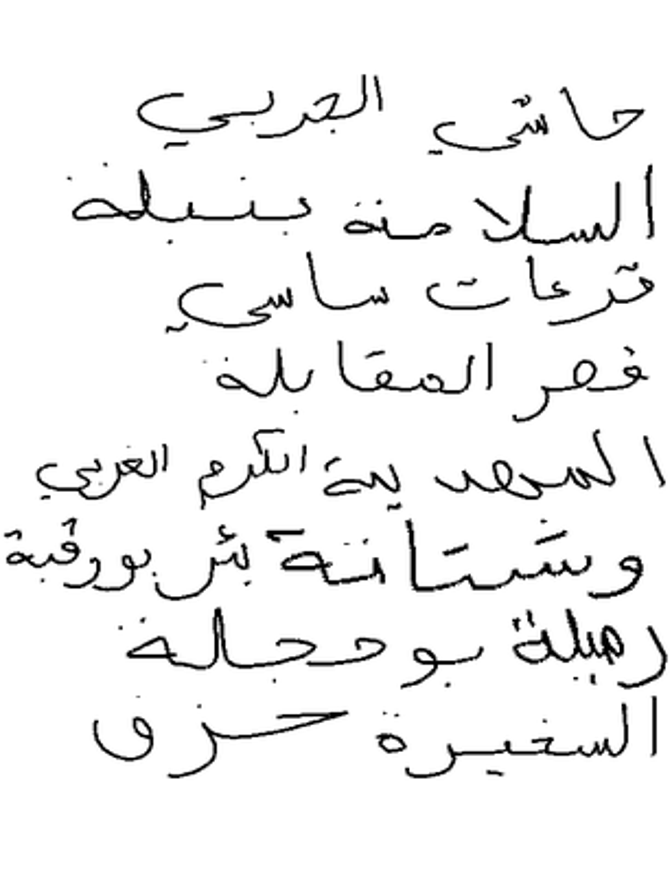 حاشي الجربي
السلامنة بنبلة
قرعات ساسي
قصر المقابلة
المهدية الكرم الغربي
وشتاتة بئر بورقبة
رميلة بودجلة
السخيرة حزق